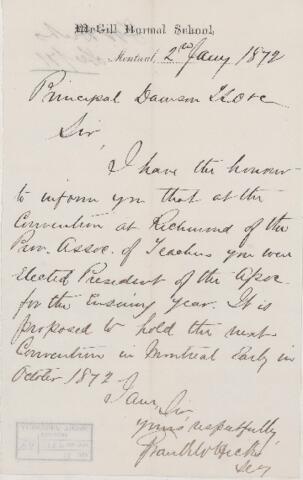 McGill Normal School,
Montreal, 2nd Jany 1872
Principal Dawson LLD &c
Sir,
I have the honour
to inform you that at the
Convention at Richmond of the
Prov. Assoc. of Teachers you were
elected President of the Assoc.
for the Ensuing year. It is
proposed to hold the next
Convention in Montreal Early in
October 1872
I am, Sir,
yours respectfully
Hicks
Secy